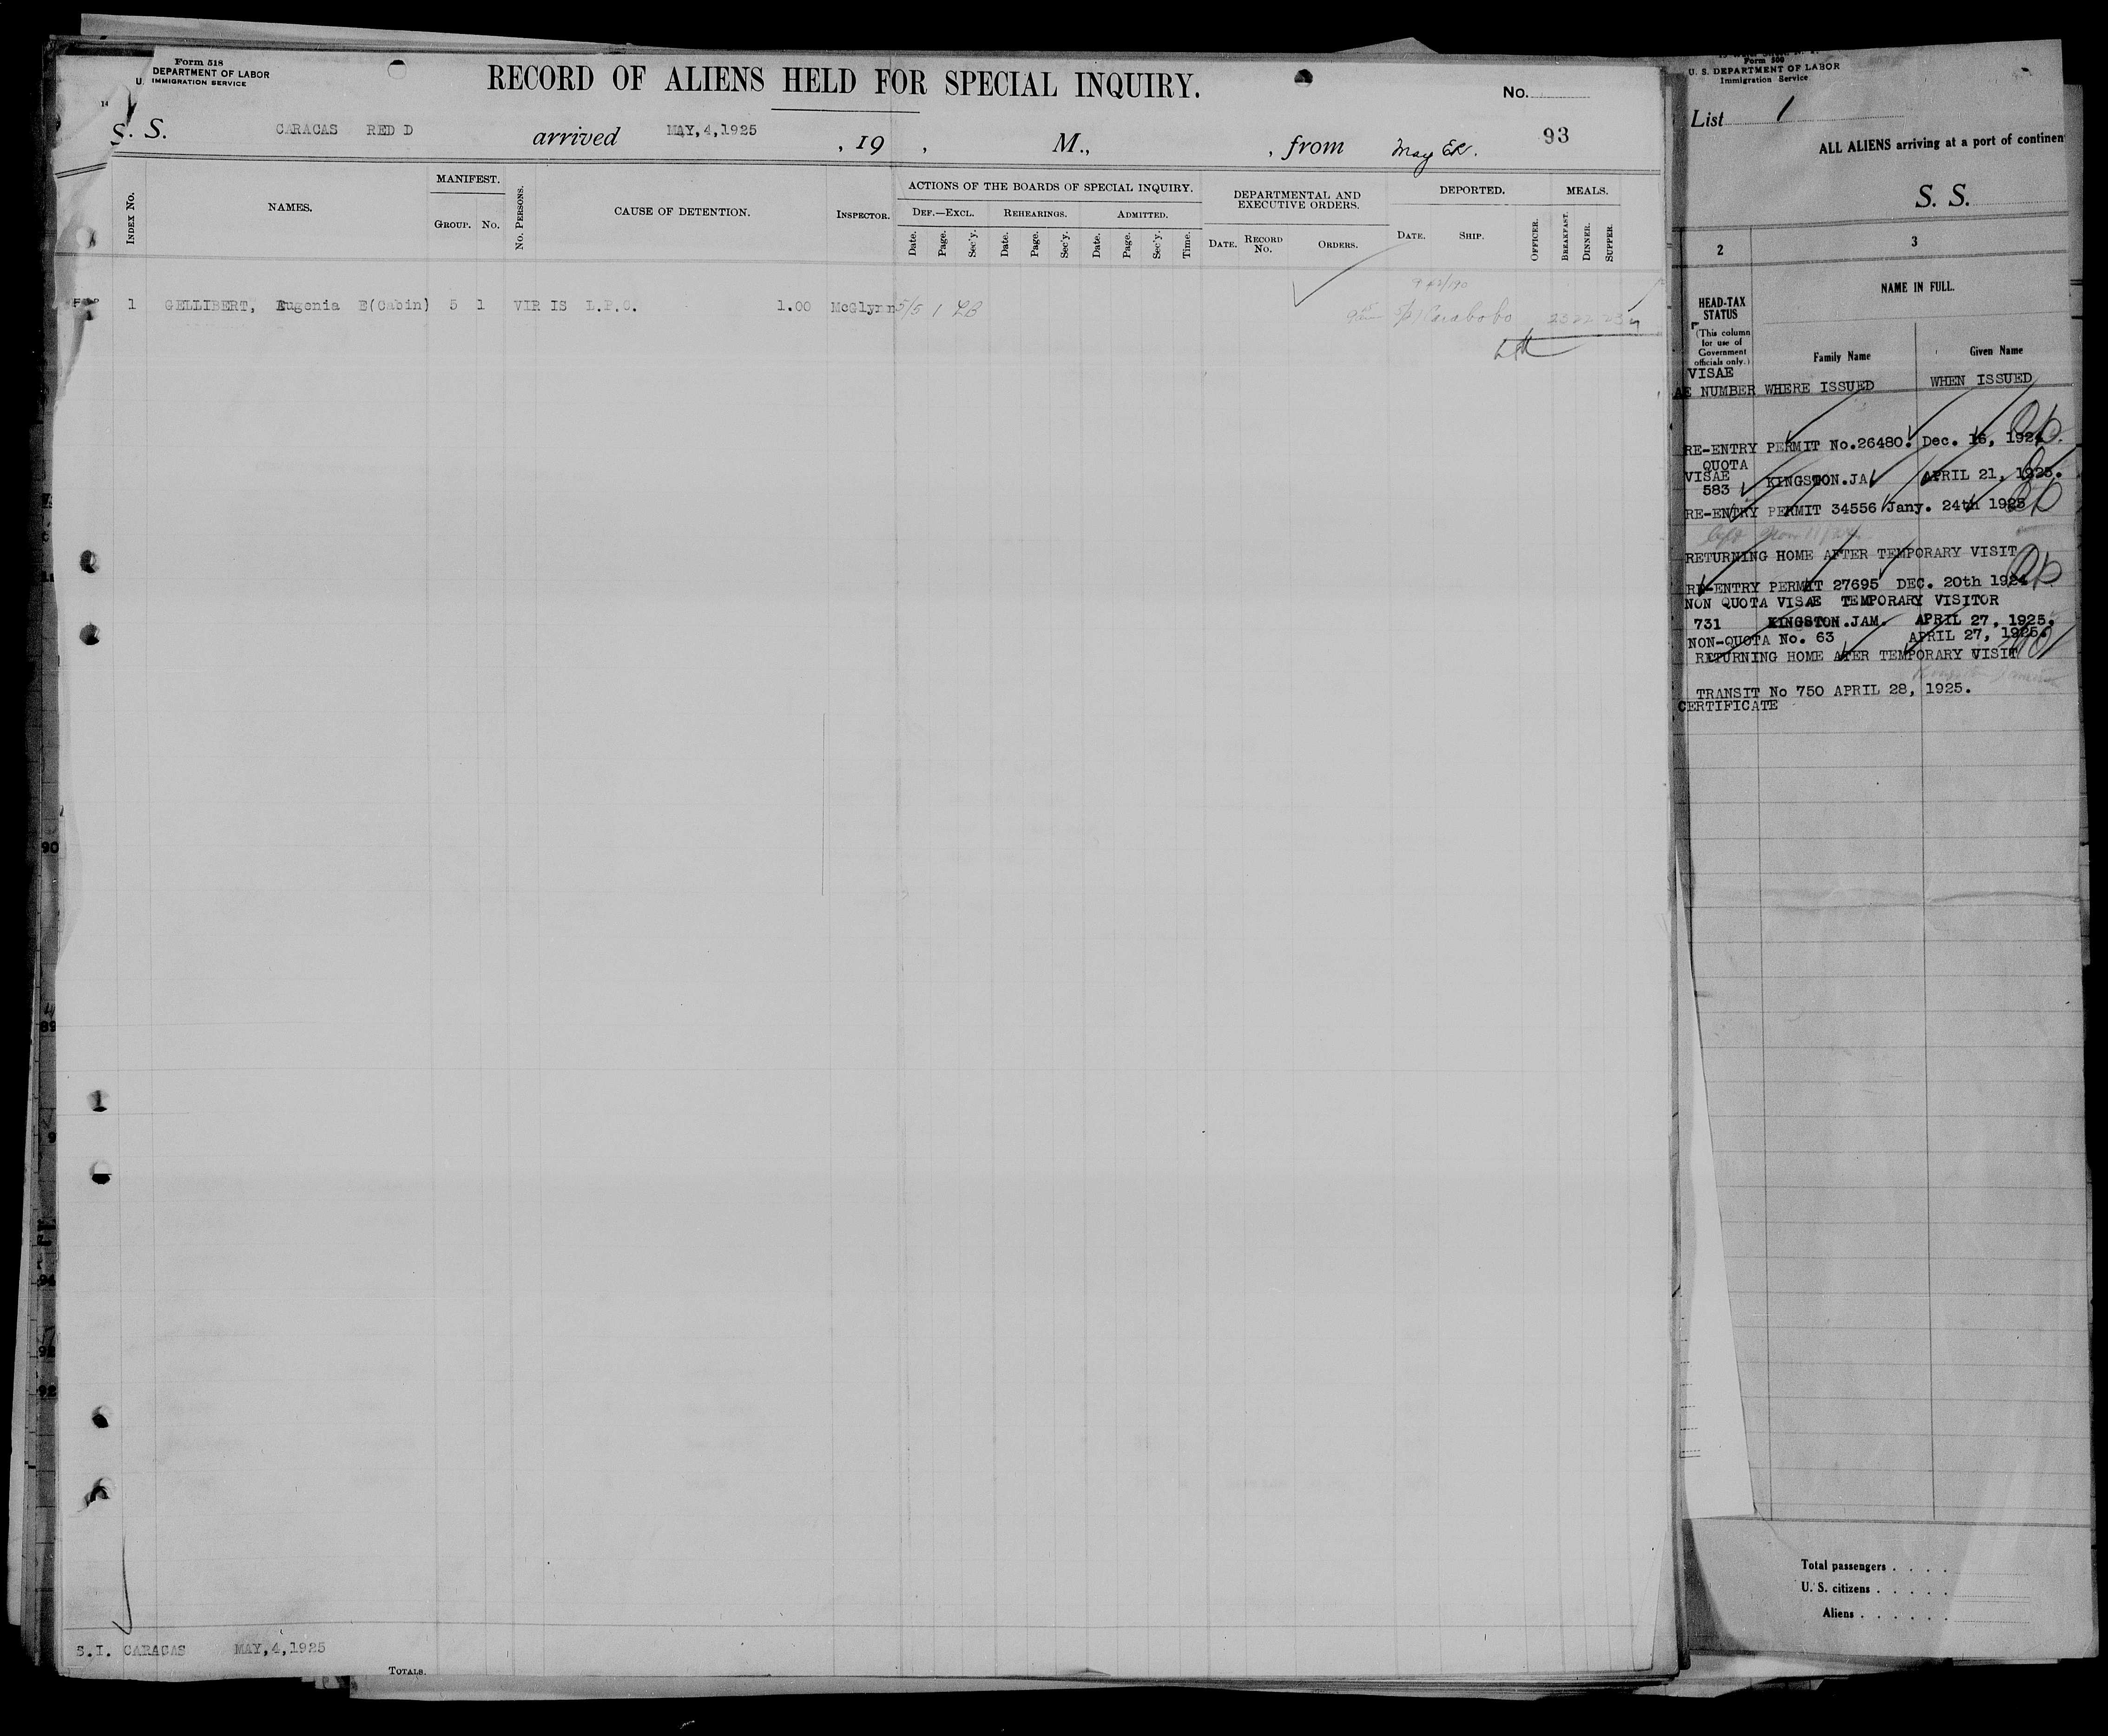 Form 518
U. S. DEPARTMENT OF LABOR
IMMIGRATION SERVICE
14
RECORD OF ALIENS HELD FOR SPECIAL INQUIRY.
No.
93
S. S. CARACAS RED D arrived MAY,4,1925 , 19 , M., , from
INDEX No.
NAMES.
MANIFEST.
GROUP. No.
No. PERSONS.
CAUSE OF DETENTION.
INSPECTOR.
ACTIONS OF THE BOARDS OF SPECIAL INQUIRY.
DEF.—EXCL. REHEARINGS. ADMITTED.
Date. Page. Sec'y. Date. Page. Sec'y. Date. Page. Sec'y. Time.
DEPARTMENTAL AND
EXECUTIVE ORDERS.
DATE. RECORD No. ORDERS.
DEPORTED.
DATE. SHIP. OFFICER.
MEALS.
BREAKFAST. DINNER. SUPPER.
1 GELLIBERT, Eugenia E(Cabin) 5 1 VIR IS L.P.C. 1.00 McGlynn 5/5 1 Carabobo
S.I. CARACAS MAY,4,1925
TOTALS.
Form 500
U. S. DEPARTMENT OF LABOR
Immigration Service
List 1
ALL ALIENS arriving at a port of continen
S. S.
2 3
HEAD-TAX
STATUS
(This column
for use of
Government
officials only.)
NAME IN FULL.
Family Name Given Name
VISAE
AE NUMBER WHERE ISSUED WHEN ISSUED
RE-ENTRY PERMIT No.26480. Dec. 16, 1924.
QUOTA
VISAE
583 KINGSTON.JA APRIL 21, 1925.
RE-ENTRY PERMIT 34556 Jany. 24th 1925
RETURNING HOME AFTER TEMPORARY VISIT
RE-ENTRY PERMIT 27695 DEC. 20th 1924
NON QUOTA VISAE TEMPORARY VISITOR
731 KINGSTON.JAM. APRIL 27, 1925.
NON-QUOTA No. 63 APRIL 27, 1925.
RETURNING HOME AFER TEMPORARY VISIT
TRANSIT No 750 APRIL 28, 1925.
CERTIFICATE
Total passengers . . . .
U. S. citizens . . . . .
Aliens . . . . . .